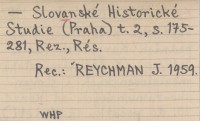 — Slovanské Historické
Studie (Praha) t. 2, s. 175-
281, Rez., Rés.
Rec.: REYCHMAN J. 1959.
WHP